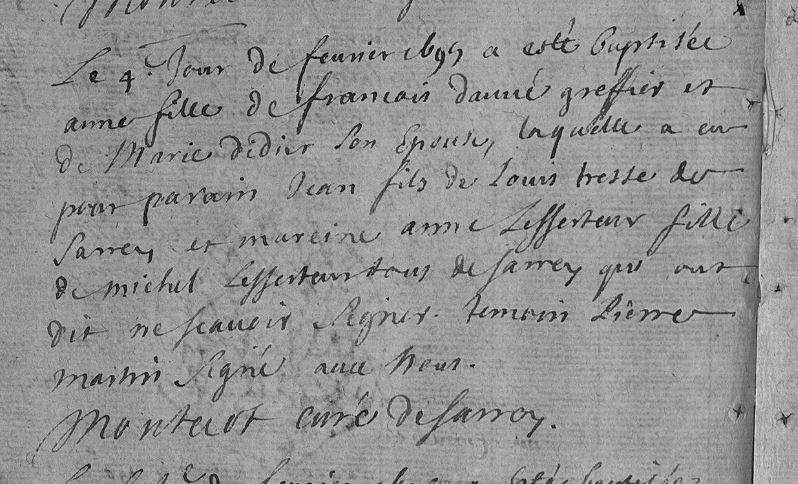 Le 4e Jour de fevrier 1695 a esté baptisée
anne fille de francois dauvé greffier et
de Marie didier son Epouse, laquelle a eu
pour parain Jean fils de Louis tresse de
Sarrey et mareine anne Lesserteur fille
de michel Lesserteur tous de Sarrey qui ont
dit ne scavoir signer. temoin pierre
martin signé avec Nous.
curé de Sarrey.